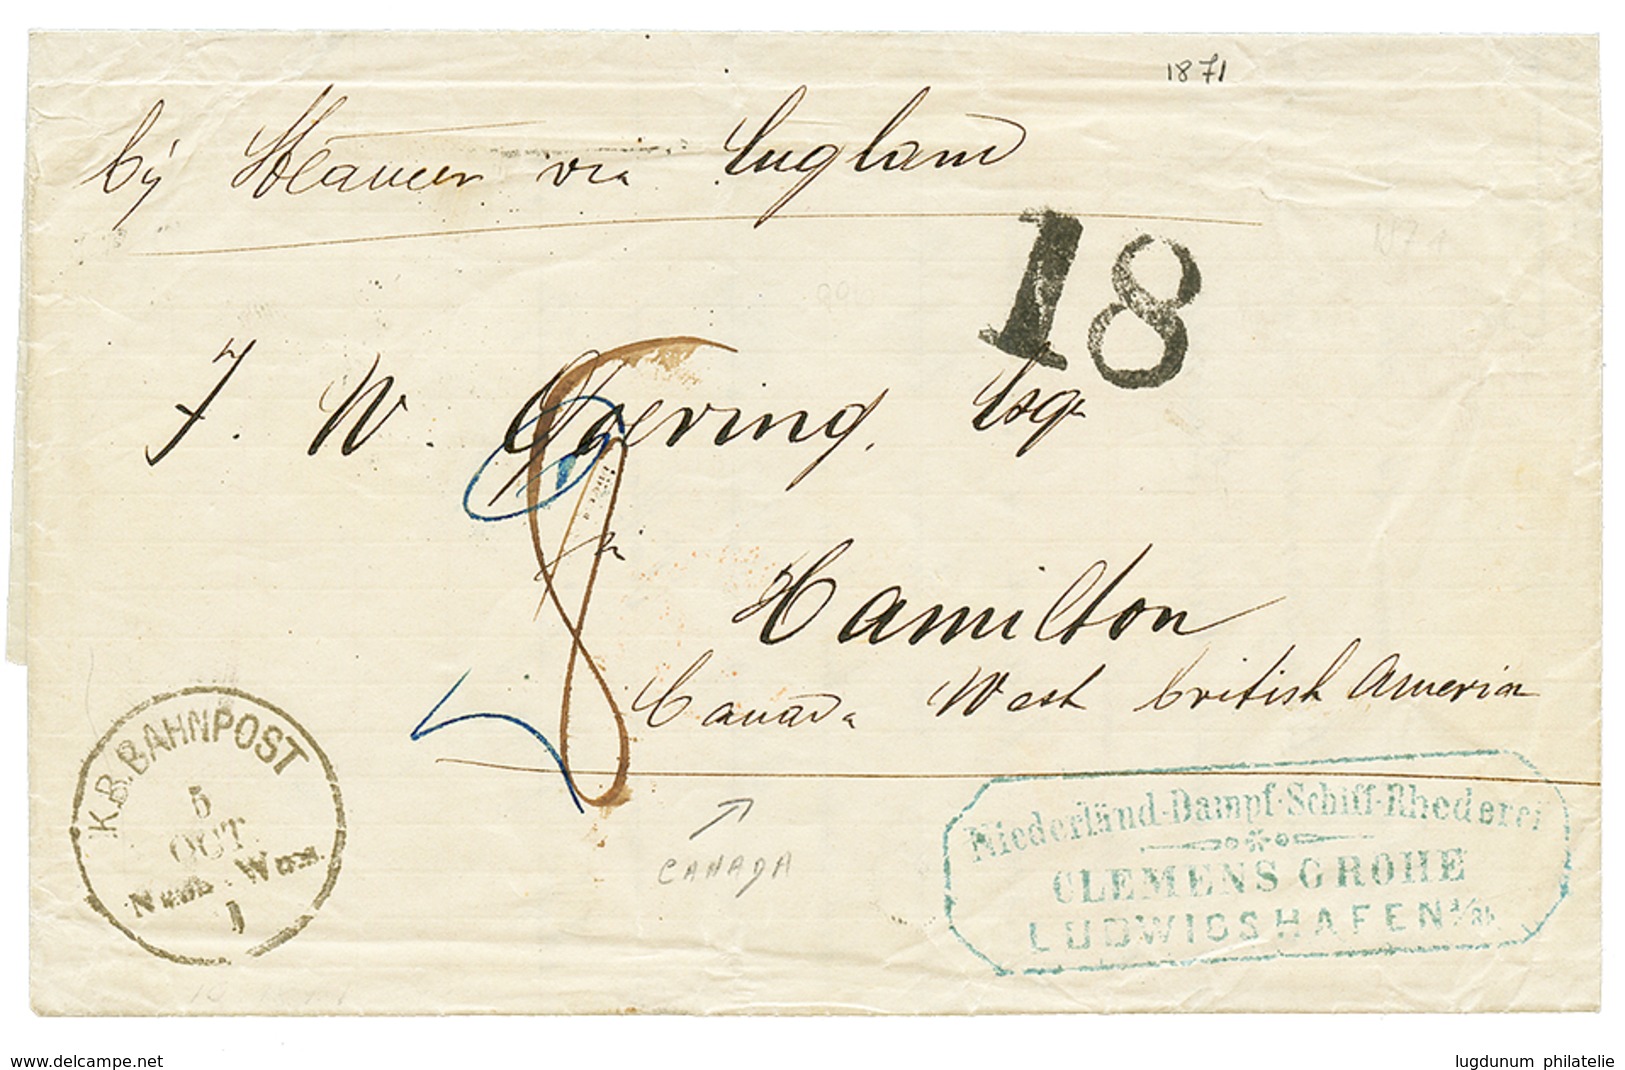 1871
by Steamer via England
18
J. W. Goering, Esqr
8
Hamilton
Canada West british America
K.B. BAHNPOST
5
OCT
1
CANADA
Niederländ-Dampf-Schiff-Rhederei
CLEMENS GROHE
LUDWIGSHAFEN a/Rh.
www.delcampe.net
lugdunum philatelie